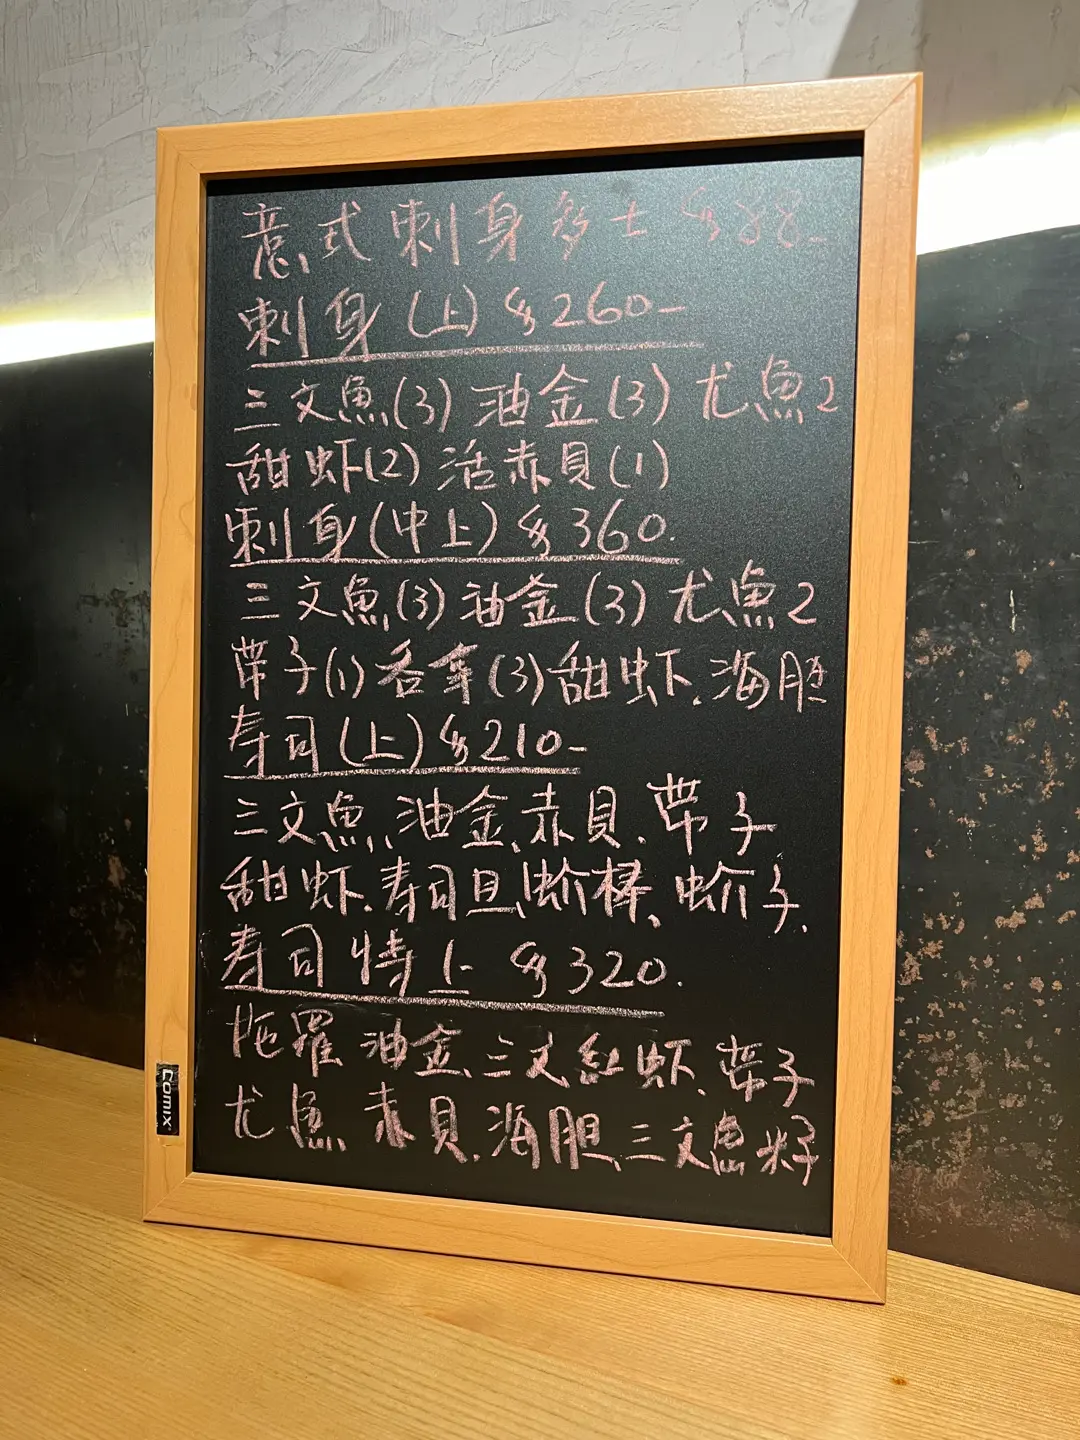 意式刺身多士 $88-
刺身(上) $260-
三文魚(3) 油金(3) 尤魚2
甜虾(2) 活赤貝(1)
刺身(中上) $360.
三文魚(3) 油金(3) 尤魚2
带子(1) 吞拿(3) 甜虾、海胆
寿司(上) $210-
三文魚、油金、赤貝、带子
甜虾、寿司旦、蚧棒、蚧子.
寿司特上 $320.
拖羅 油金、三文 红虾、带子
尤魚 赤貝、海胆、三文魚籽
COMIX